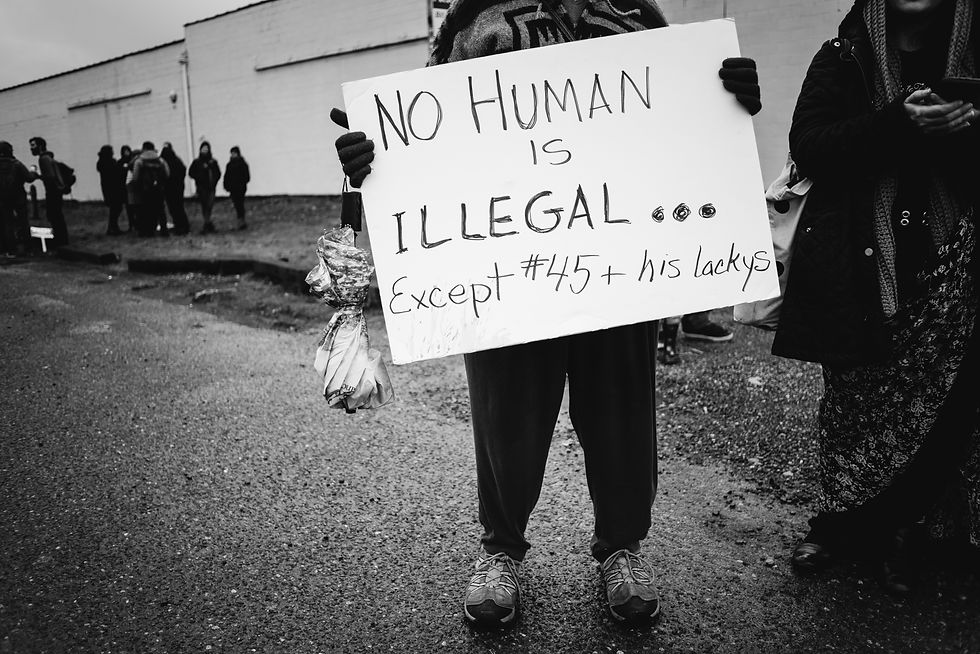 NO HUMAN
IS
ILLEGAL ...
Except #45 + his lackys